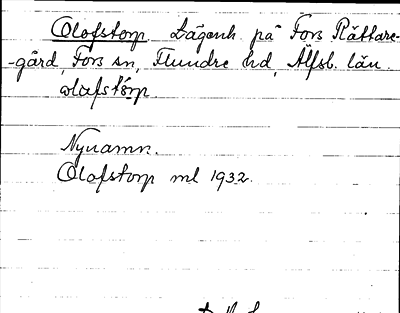 Olofstorp Lägenh. på Fors Rättare-
-gård, Fors sn, Flundre hd, Älfsb. län.
olafstorp
Nynamn.
Olofstorp ml 1932.